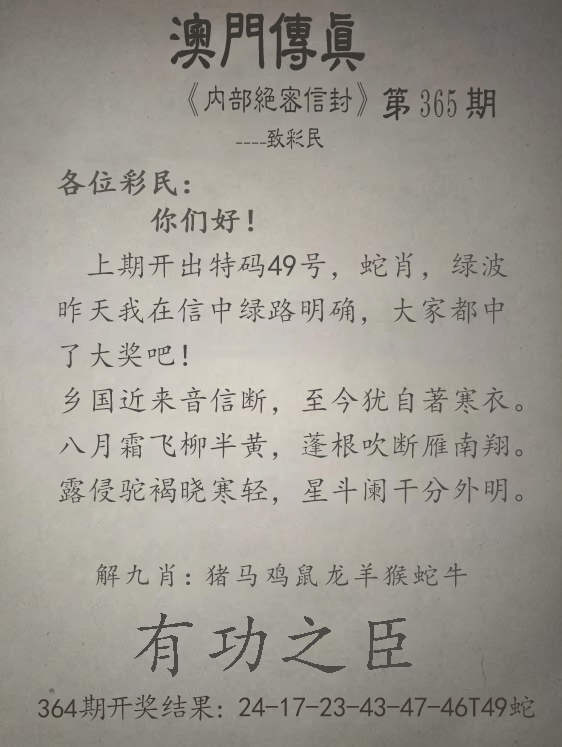 澳門傳真
《内部絕密信封》第365期
----致彩民
各位彩民：
你们好！
上期开出特码49号，蛇肖，绿波
昨天我在信中绿路明确，大家都中
了大奖吧！
乡国近来音信断，至今犹自著寒衣。
八月霜飞柳半黄，蓬根吹断雁南翔。
露侵驼褐晓寒轻，星斗阑干分外明。
解九肖：猪马鸡鼠龙羊猴蛇牛
有功之臣
364期开奖结果：24-17-23-43-47-46T49蛇